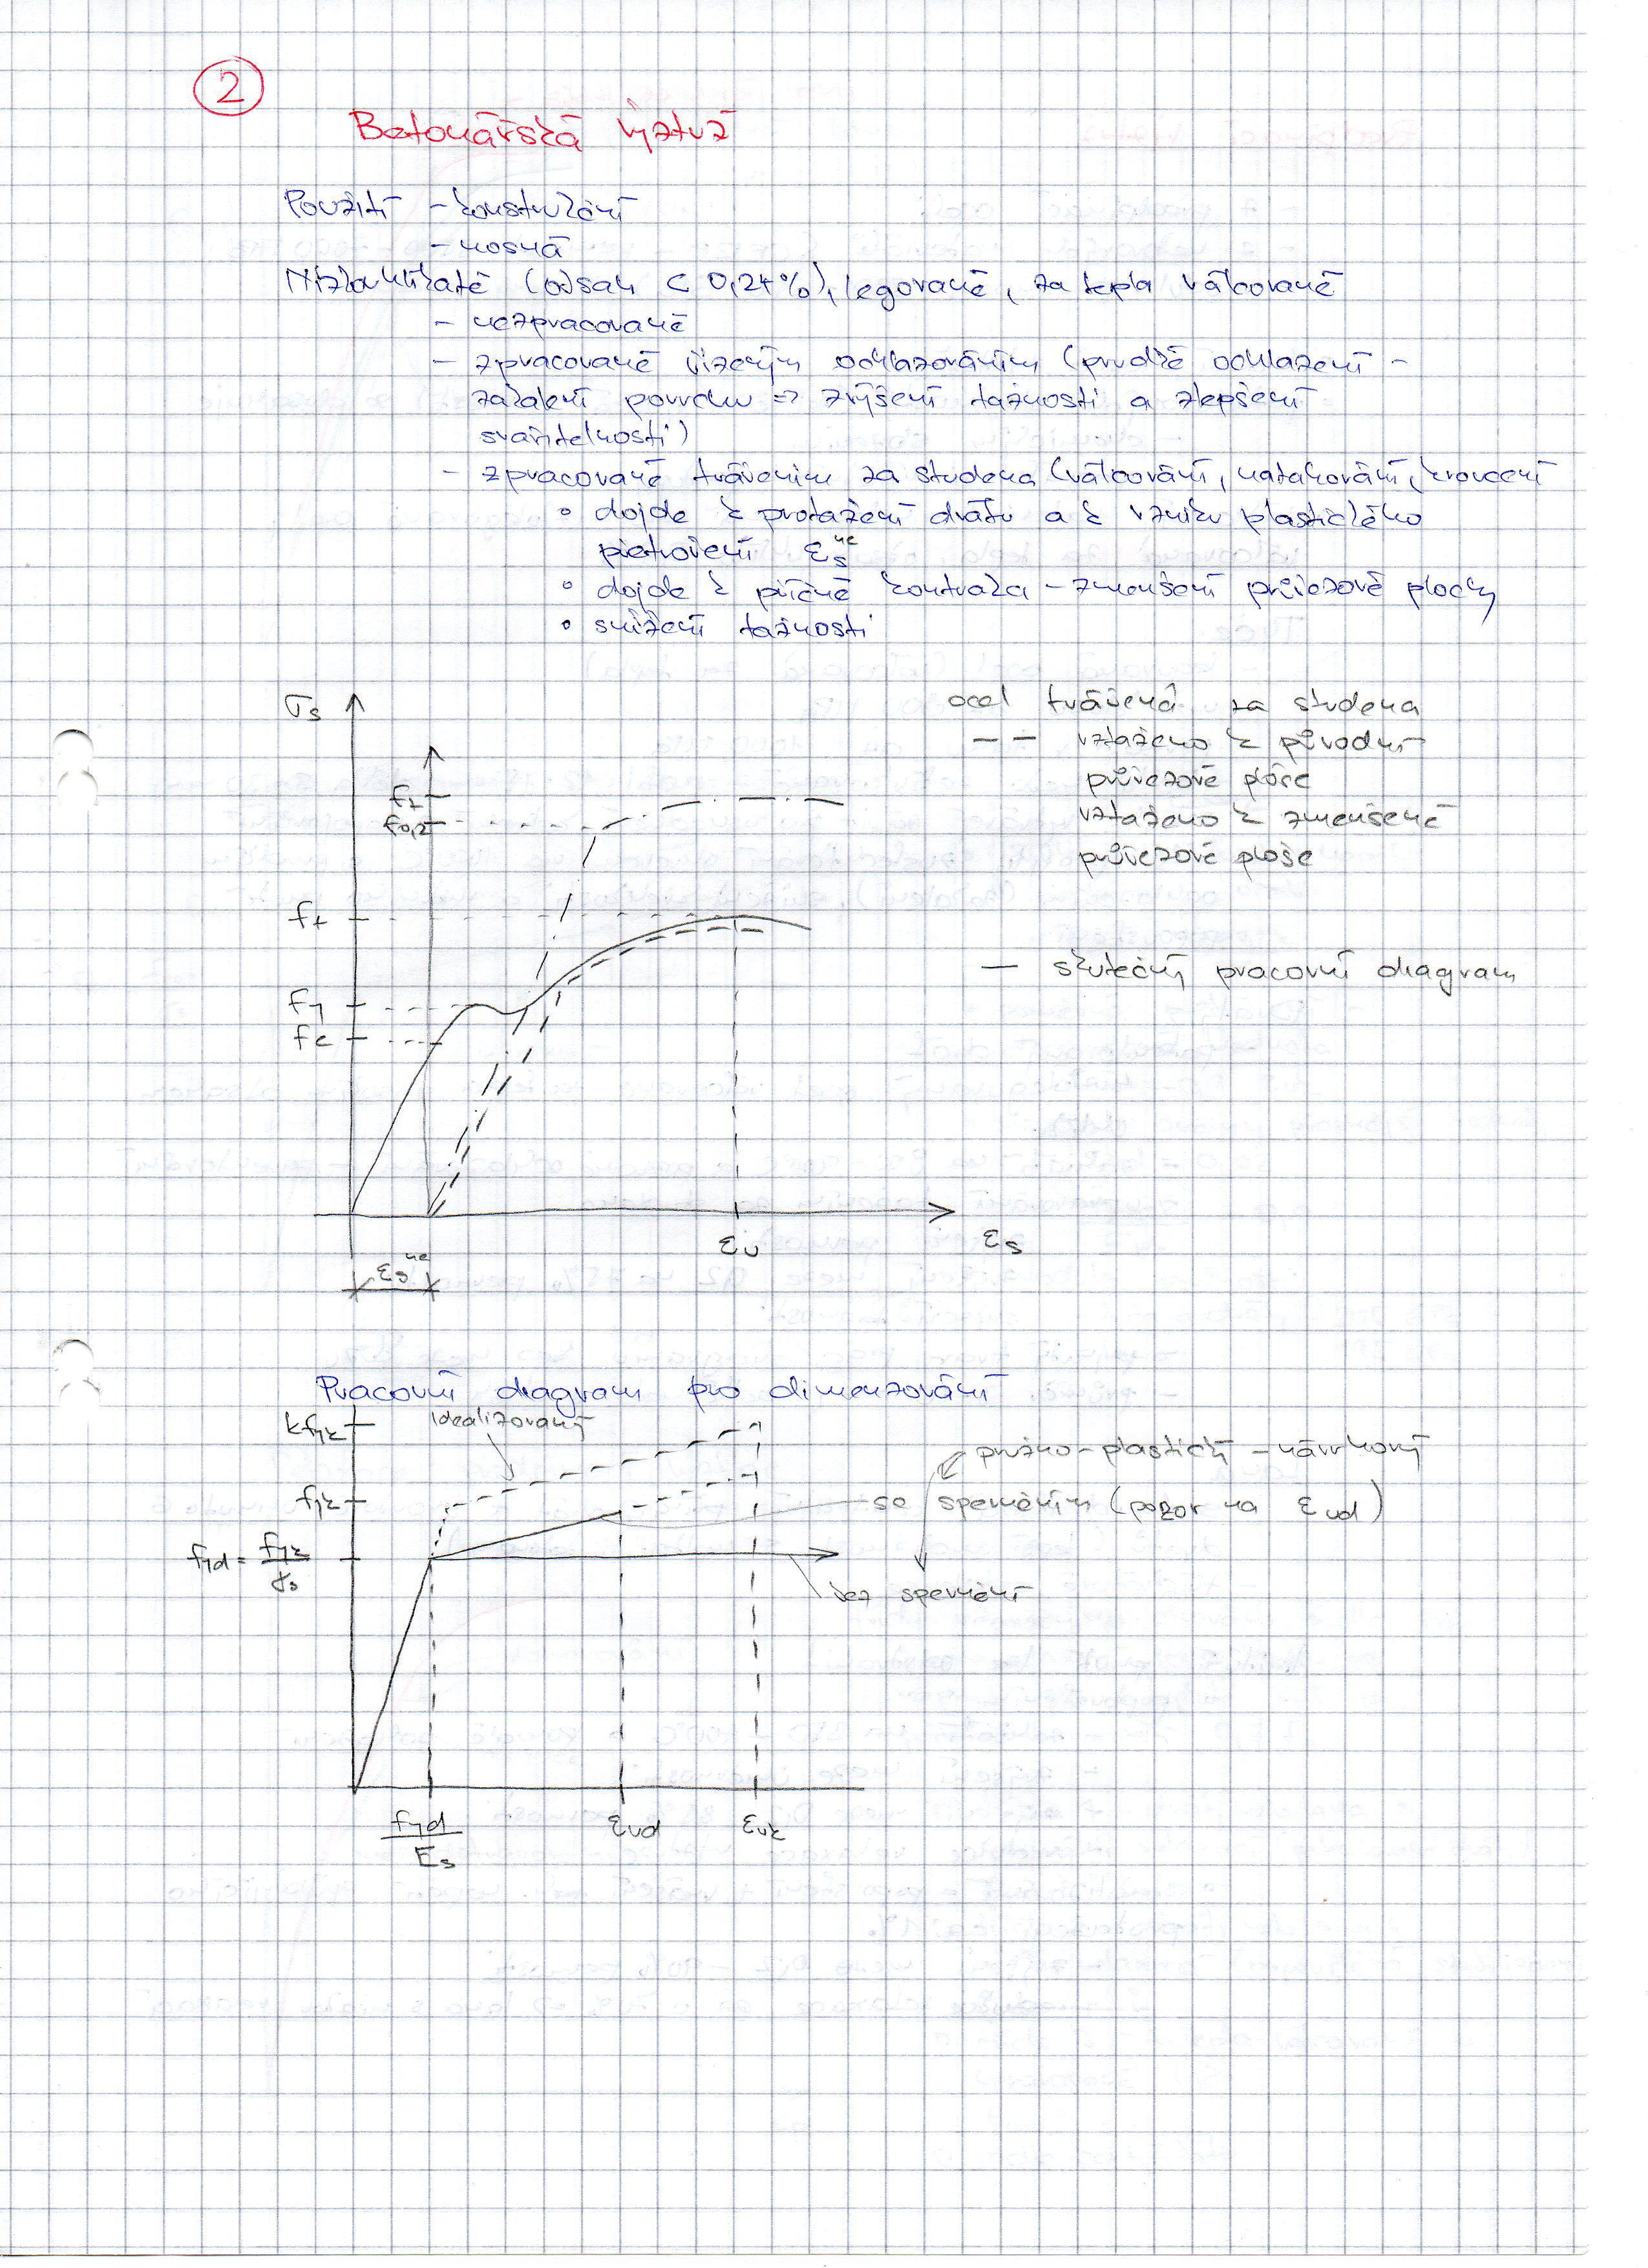 2
Betonářská výztuž
Použití - konstrukční
- nosná
Nízkouhlíkaté (obsah C 0,24%), legované, za tepla válcované
- nezpracované
- zpracované řízeným ochlazováním (prudké ochlazení -
zakalení povrchu => zvýšení tažnosti a zlepšení
svařitelnosti)
- zpracované tvářením za studena (válcování, natahování, kroucení
° dojde k protažení drátu a k vzniku plastického
přetvoření εs^ne
° dojde k příčné kontrakci - zmenšení průřezové plochy
° snížení tažnosti
σs
ocel tvářená za studena
-- vztaženo k původní
průřezové ploše
vztaženo k zmenšené
průřezové ploše
ft
f0,2
ft
— skutečný pracovní diagram
fy
fe
εu
εs
εs^ne
Pracovní diagram pro dimenzování
kfyk
idealizovaný
pružno-plastický - návrhový
fyk
se zpevněním (pozor na εud)
fyd = fyk/γs
bez zpevnění
fyd/Es
εud
εuk